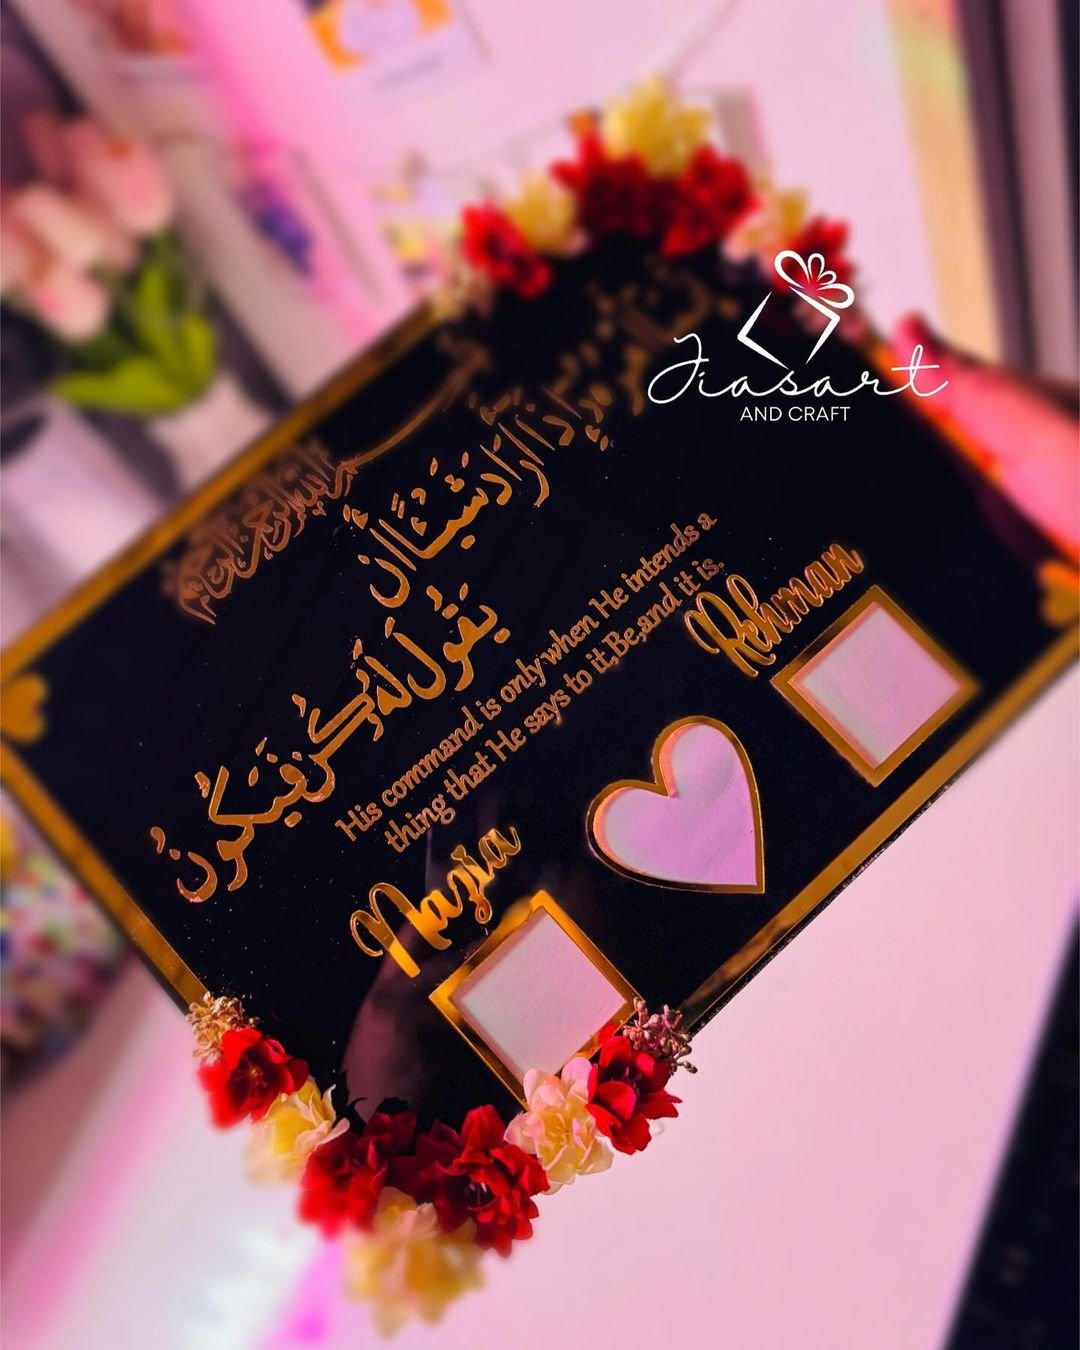 Jiasart
AND CRAFT
بسم الله الرحمن الرحيم
إِذَا أَرَادَ شَيْئًا أَن
يَقُولَ لَهُ كُن فَيَكُونُ
His command is only when He intends a
thing that He says to it,Be,and it is.
Nazia
Rehman